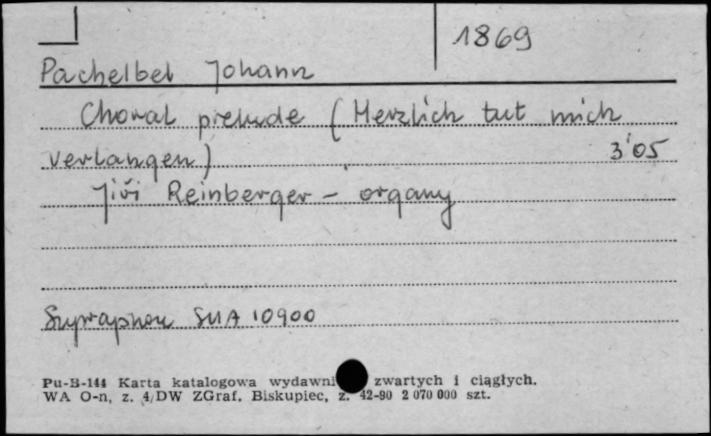 1869
Pachelbel Johann
Choral prelude (Herzlich tut mich
verlangen) 3'05
Jiři Reinberger - organy
Supraphon SUA 10900
Pu-B-144 Karta katalogowa wydawni zwartych i ciągłych.
WA O-n, z. 4/DW ZGraf. Biskupiec, z. 42-90 2 070 000 szt.